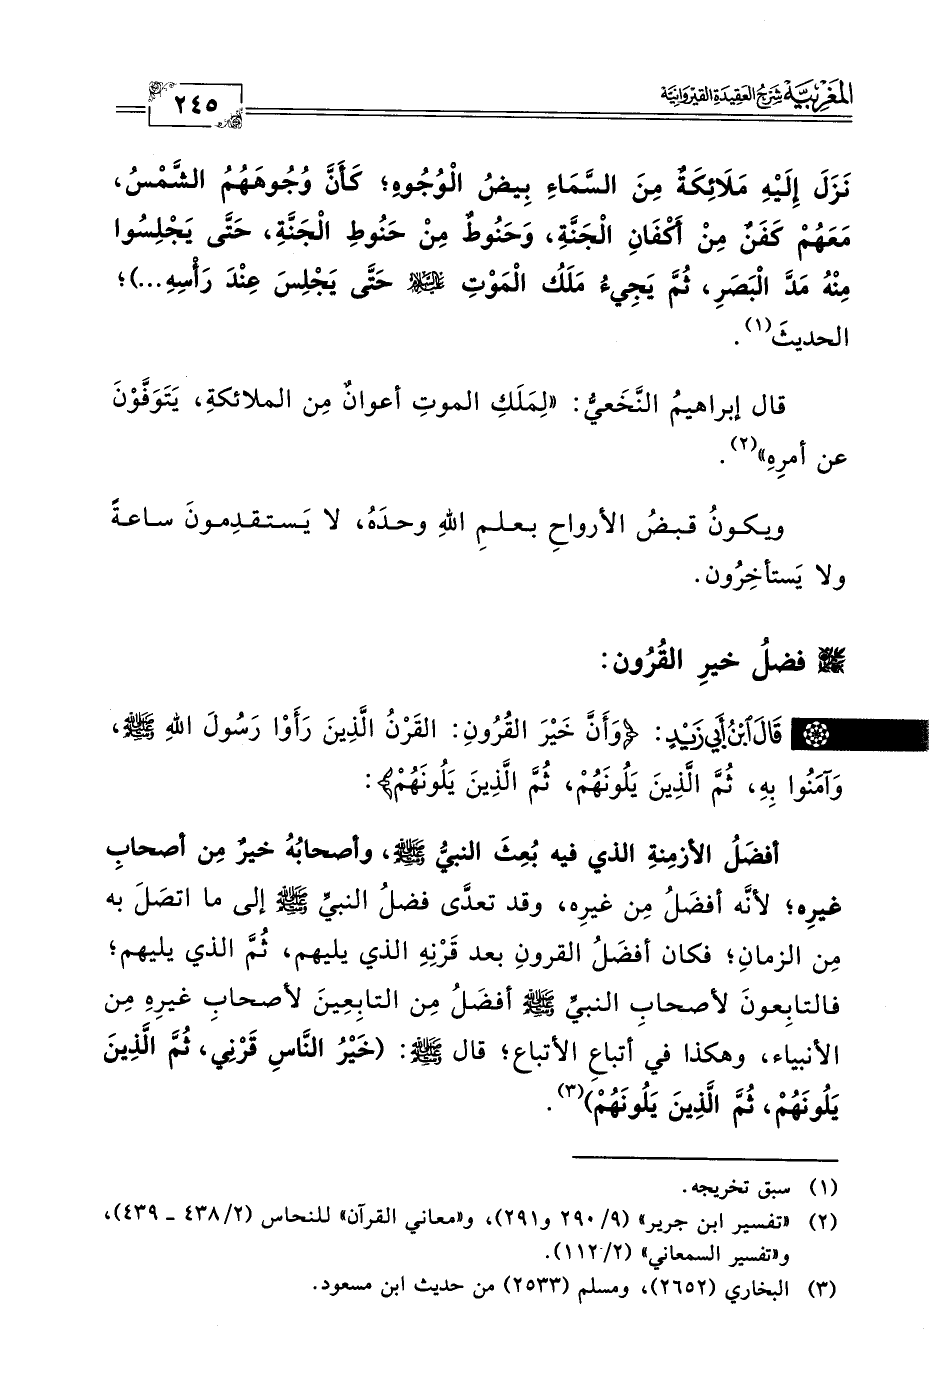 المغربية شرح العقيدة القيروانية
٢٤٥
نَزَلَ إِلَيْهِ مَلَائِكَةٌ مِنَ السَّمَاءِ بِيضُ الْوُجُوهِ؛ كَأَنَّ وُجُوهَهُمُ الشَّمْسُ،
مَعَهُمْ كَفَنٌ مِنْ أَكْفَانِ الْجَنَّةِ، وَحَنُوطٌ مِنْ حَنُوطِ الْجَنَّةِ، حَتَّى يَجْلِسُوا
مِنْهُ مَدَّ الْبَصَرِ، ثُمَّ يَجِيءُ مَلَكُ الْمَوْتِ عليه السلام حَتَّى يَجْلِسَ عِنْدَ رَأْسِهِ...)؛
الحديثَ(١).
قال إبراهيمُ النَّخَعيُّ: «لِمَلَكِ الموتِ أعوانٌ مِن الملائكةِ، يَتَوَفَّوْنَ
عن أمرِهِ»(٢).
ويكونُ قبضُ الأرواحِ بعلمِ اللهِ وحدَهُ، لا يَستقدِمونَ ساعةً
ولا يَستأخِرُون.
فضلُ خيرِ القُرُون:
قَالَ ابْنُ أَبِي زَيْدٍ: ﴿وَأَنَّ خَيْرَ القُرُونِ: القَرْنُ الَّذِينَ رَأَوْا رَسُولَ اللهِ ﷺ،
وَآمَنُوا بِهِ، ثُمَّ الَّذِينَ يَلُونَهُمْ، ثُمَّ الَّذِينَ يَلُونَهُمْ﴾:
أفضَلُ الأزمِنةِ الذي فيه بُعِثَ النبيُّ ﷺ، وأصحابُهُ خيرٌ مِن أصحابِ
غيرِه؛ لأنَّه أفضَلُ مِن غيرِه، وقد تعدَّى فضلُ النبيِّ ﷺ إلى ما اتصَلَ به
مِن الزمانِ؛ فكان أفضَلُ القرونِ بعد قَرْنِهِ الذي يليهم، ثُمَّ الذي يليهم؛
فالتابِعونَ لأصحابِ النبيِّ ﷺ أفضَلُ مِن التابِعِينَ لأصحابِ غيرِهِ مِن
الأنبياء، وهكذا في أتباعِ الأتباع؛ قال ﷺ: (خَيْرُ النَّاسِ قَرْنِي، ثُمَّ الَّذِينَ
يَلُونَهُمْ، ثُمَّ الَّذِينَ يَلُونَهُمْ)(٣).
(١) سبق تخريجه.
(٢) «تفسير ابن جرير» (٩/ ٢٩٠ و٢٩١)، و«معاني القرآن» للنحاس (٢/ ٤٣٨ ـ ٤٣٩)،
و«تفسير السمعاني» (٢/ ١١٢).
(٣) البخاري (٢٦٥٢)، ومسلم (٢٥٣٣) من حديث ابن مسعود.